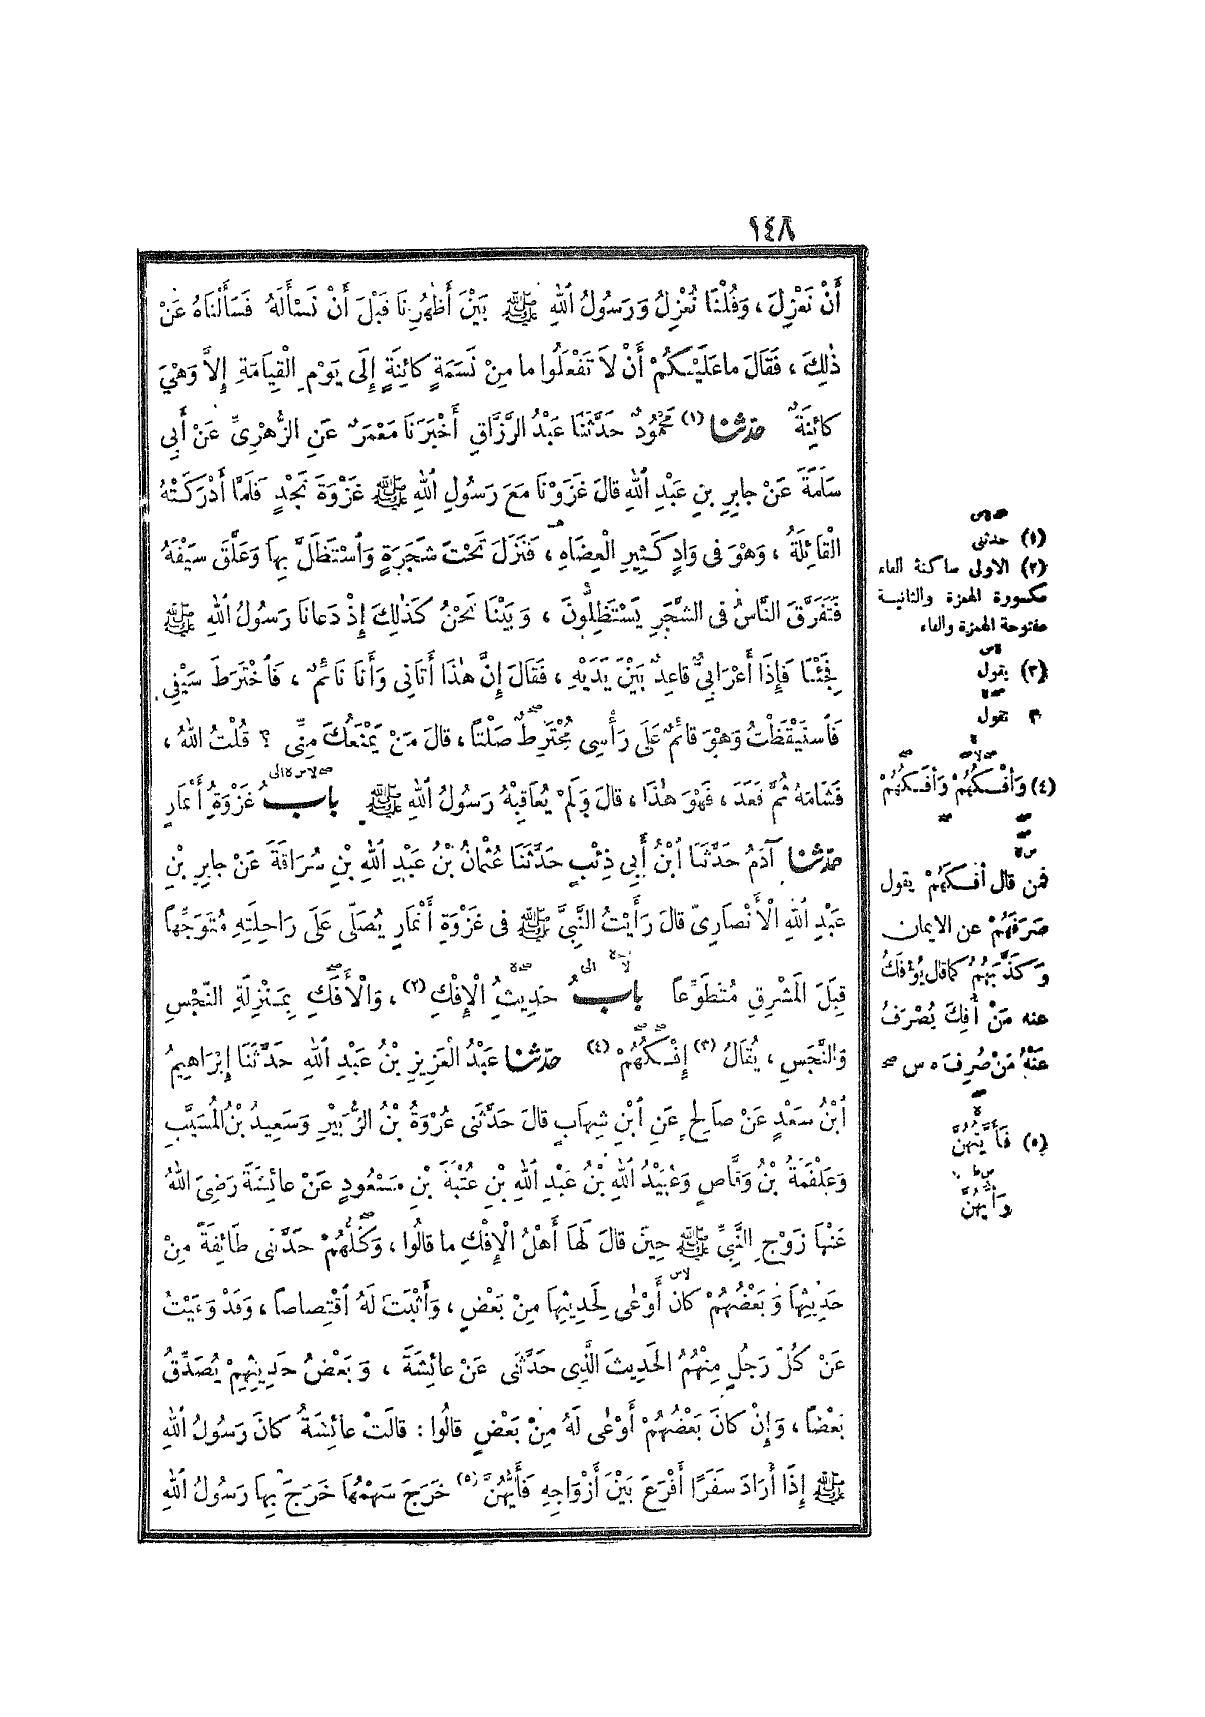 ١٤٨
أَنْ نَعْزِلَ ، وَقُلْنَا نَعْزِلُ وَرَسُولُ اللهِ ﷺ بَيْنَ أَظْهُرِنَا قَبْلَ أَنْ نَسْأَلَهُ فَسَأَلْنَاهُ عَنْ
ذٰلِكَ ، فَقَالَ ما عَلَيْكُمْ أَنْ لاَ تَفْعَلُوا ما مِنْ نَسَمَةٍ كائِنَةٍ إِلَى يَوْمِ الْقِيَامَةِ إِلاَّ وَهْيَ
كائِنَةٌ حدثنا (١) مَحْمُودٌ حَدَّثَنَا عَبْدُ الرَّزَّاقِ أَخْبَرَنَا مَعْمَرٌ عَنِ الزُّهْرِيِّ عَنْ أَبِي
سَلَمَةَ عَنْ جابِرِ بنِ عَبْدِ اللهِ قالَ غَزَوْنَا مَعَ رَسُولِ اللهِ ﷺ غَزْوَةَ نَجْدٍ فَلَمَّا أَدْرَكَتْهُ
الْقَائِلَةُ ، وَهْوَ فى وَادٍ كَثِيرِ الْعِضَاهِ ، فَنَزَلَ تَحْتَ شَجَرَةٍ وَاسْتَظَلَّ بِهَا وَعَلَّقَ سَيْفَهُ
فَتَفَرَّقَ النَّاسُ فى الشَّجَرِ يَسْتَظِلُّونَ ، وَبَيْنَا نَحْنُ كَذٰلِكَ إِذْ دَعَانَا رَسُولُ اللهِ ﷺ
فَجِئْنَا فَإِذَا أَعْرَابِيٌّ قاعِدٌ بَيْنَ يَدَيْهِ ، فَقَالَ إِنَّ هٰذَا أَتَانِى وَأَنَا نَائِمٌ ، فَاخْتَرَطَ سَيْفِي
فَاسْتَيْقَظْتُ وَهْوَ قائِمٌ عَلَى رَأْسِى مُخْتَرِطٌ صَلْتًا ، قالَ مَنْ يَمْنَعُكَ مِنِّى ؟ قُلْتُ اللهُ ،
فَشَامَهُ ثُمَّ قَعَدَ ، فَهْوَ هٰذَا ، قالَ وَلَمْ يُعَاقِبْهُ رَسُولُ اللهِ ﷺ باب غَزْوَةُ أَنْمَارٍ
حدثنا آدَمُ حَدَّثَنَا ابْنُ أَبِي ذِئْبٍ حَدَّثَنَا عُثْمَانُ بْنُ عَبْدِ اللهِ بْنِ سُرَاقَةَ عَنْ جابِرِ بْنِ
عَبْدِ اللهِ الْأَنْصَارِىِّ قالَ رَأَيْتُ النَّبِيَّ ﷺ فى غَزْوَةِ أَنْمَارٍ يُصَلِّى عَلَى رَاحِلَتِهِ مُتَوَجِّهاً
قِبَلَ المَشْرِقِ مُتَطَوِّعاً بابُ حَدِيثُ الْإِفْكِ (٢) ، وَالْأَفَكِ بِمَنْزِلَةِ النِّجْسِ
وَالنَّجَسِ ، يُقَالُ (٣) إِفْكُهُمْ (٤) حدثنا عَبْدُ الْعَزِيزِ بْنُ عَبْدِ اللهِ حَدَّثَنَا إِبْرَاهِيمُ
ابْنُ سَعْدٍ عَنْ صَالِحٍ عَنِ ابْنِ شِهَابٍ قالَ حَدَّثَنى عُرْوَةُ بْنُ الزُّبَيْرِ وَسَعِيدُ بْنُ الْمُسَيَّبِ
وَعَلْقَمَةُ بْنُ وَقَّاصٍ وَعُبَيْدُ اللهِ بْنُ عَبْدِ اللهِ بْنِ عُتْبَةَ بْنِ مَسْعُودٍ عَنْ عائِشَةَ رَضِىَ اللهُ
عَنْهَا زَوْجِ النَّبِيِّ ﷺ حِينَ قالَ لَهَا أَهْلُ الْإِفْكِ ما قالُوا ، وَكُلُّهُمْ حَدَّثَنى طَائِفَةً مِنْ
حَدِيثِهَا وَبَعْضُهُمْ كانَ أَوْعٰى لِحَدِيثِهَا مِنْ بَعْضٍ ، وَأَثْبَتَ لَهُ اقْتِصاصاً ، وَقَدْ وَعَيْتُ
عَنْ كُلِّ رَجُلٍ مِنْهُمُ الحَدِيثَ الَّذِى حَدَّثَنى عَنْ عائِشَةَ ، وَبَعْضُ حَدِيثِهِمْ يُصَدِّقُ
بَعْضاً ، وَإِنْ كانَ بَعْضُهُمْ أَوْعٰى لَهُ مِنْ بَعْضٍ قالُوا : قالَتْ عائِشَةُ كانَ رَسُولُ اللهِ
ﷺ إِذَا أَرَادَ سَفَرًا أَقْرَعَ بَيْنَ أَزْوَاجِهِ فَأَيُّهُنَّ (٥) خَرَجَ سَهْمُهَا خَرَجَ بِهَا رَسُولُ اللهِ
(١) حدثنى
(٢) الاولى ساكنة الفاء
مكسورة الهمزة والثانية
مفتوحة الهمزة والفاء
(٣) يقول
تقول
(٤) وَأَفْكُهُمْ وَأَفَكُهُمْ
فمن قال أفكهم يقول
صَرَفَهُمْ عن الايمان
وَكَذَّبَهُمْ كما قال يُؤْفَكُ
عنه مَنْ أُفِكَ يُصْرَفُ
عَنْهُ مَنْ صُرِفَ
(٥) فَأَيَّتُهُنَّ
وَأَيُّهُنَّ